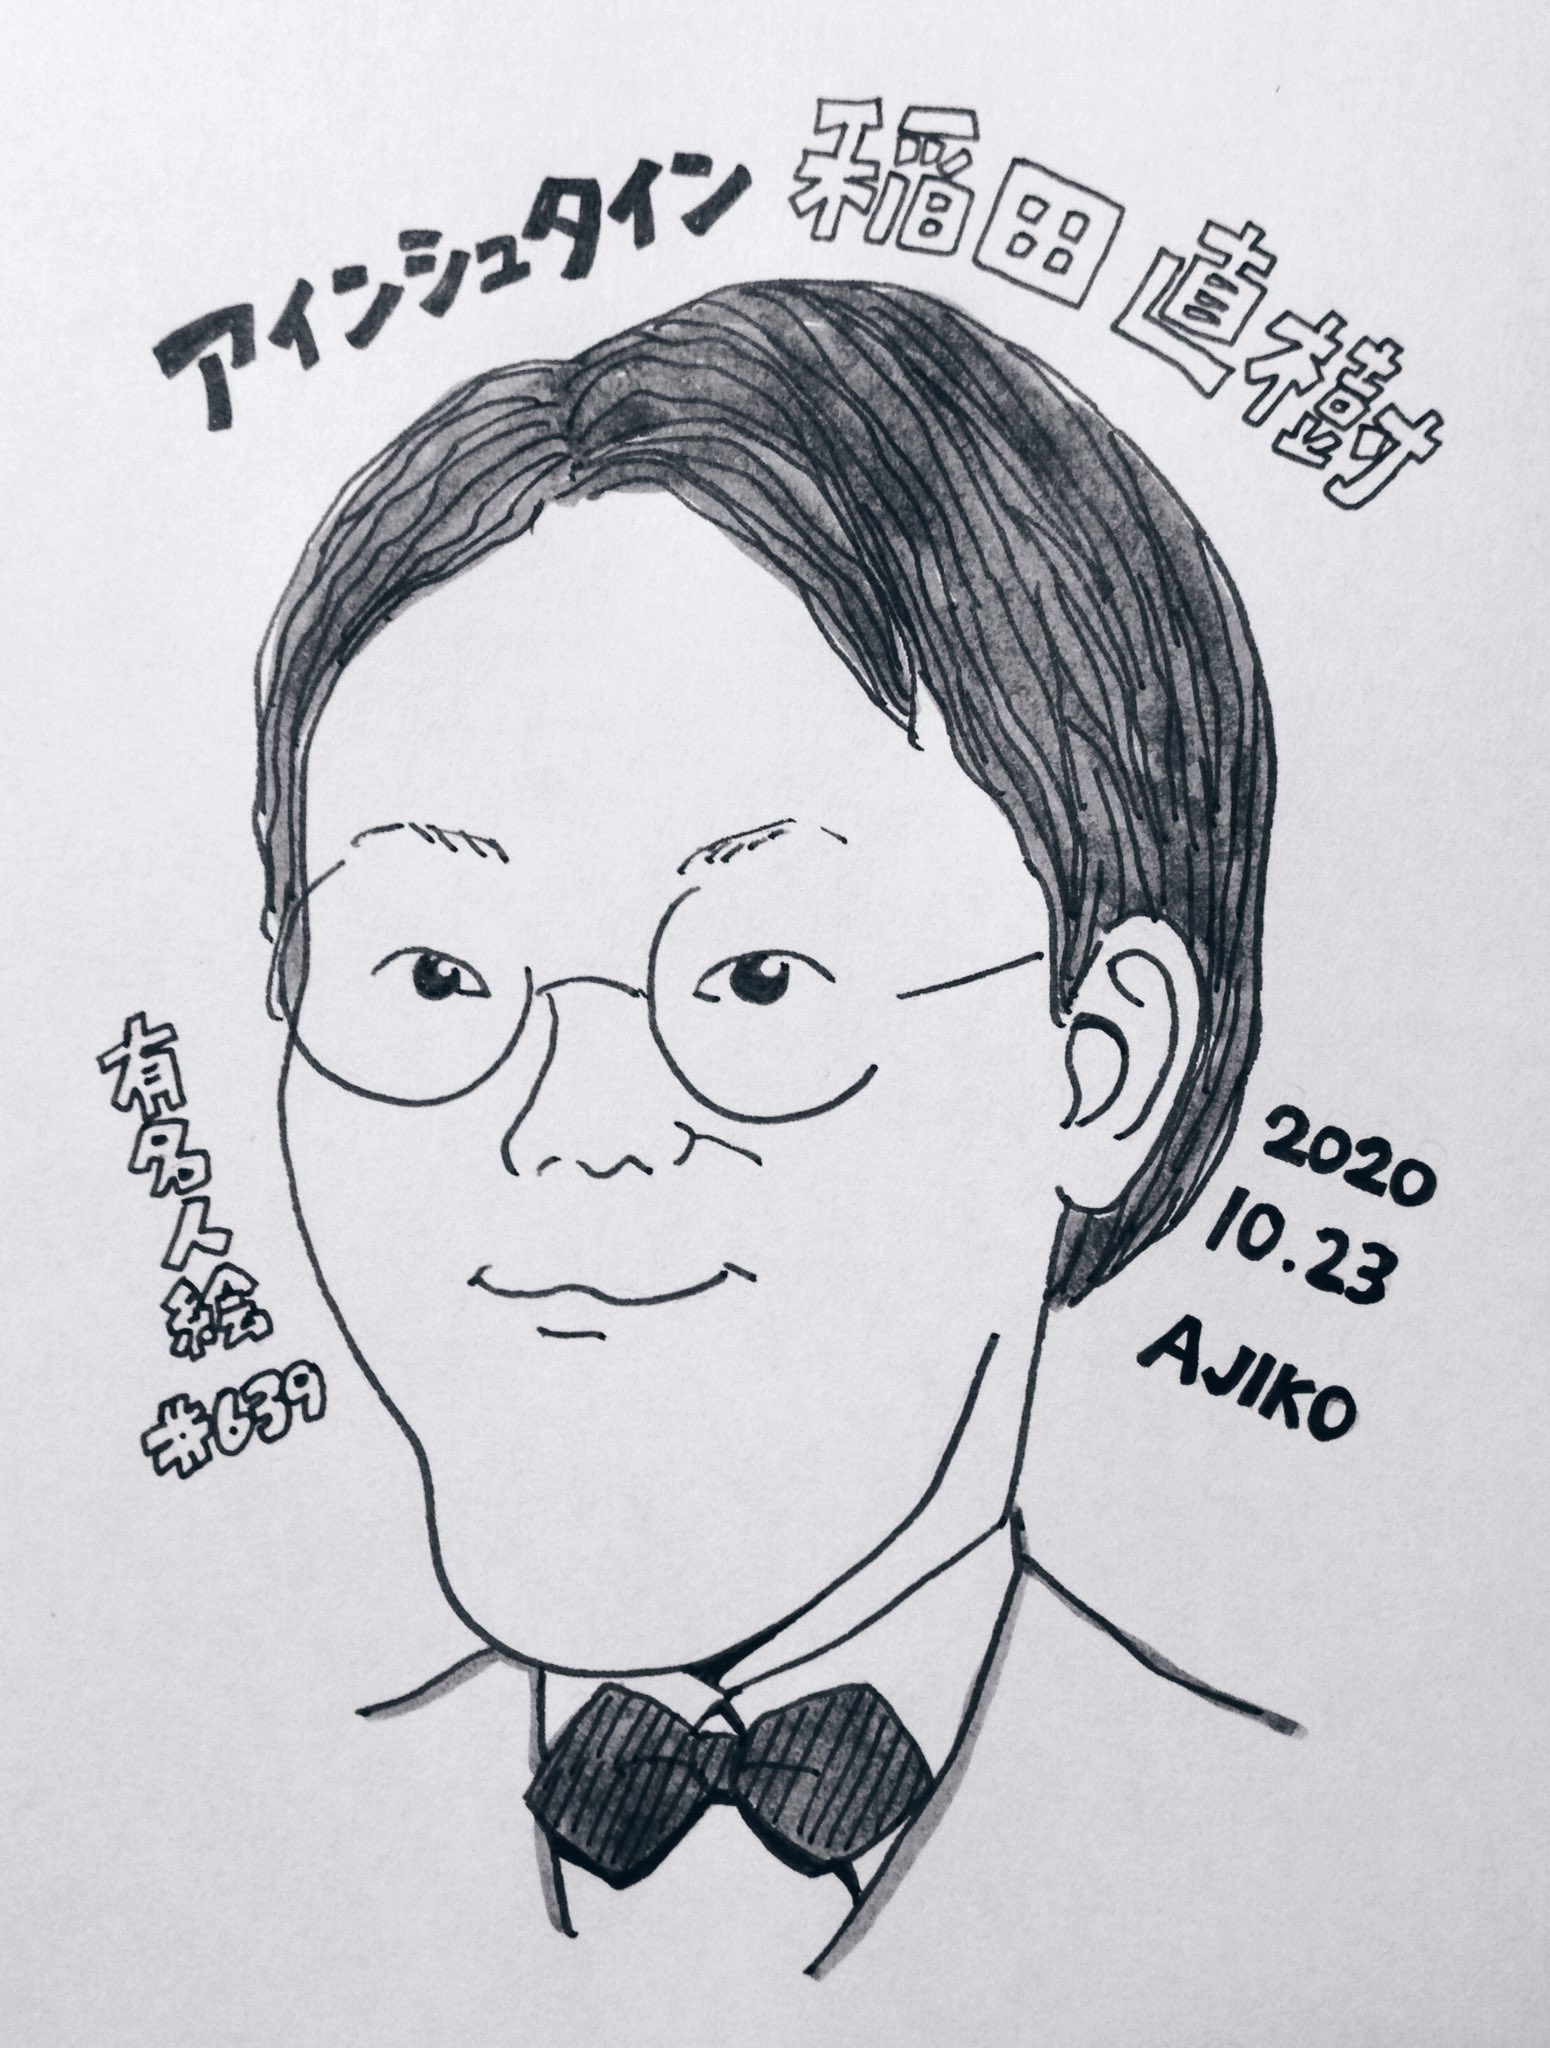 アインシュタイン 稲田直樹
有名人絵
#639
2020
10.23
AJIKO